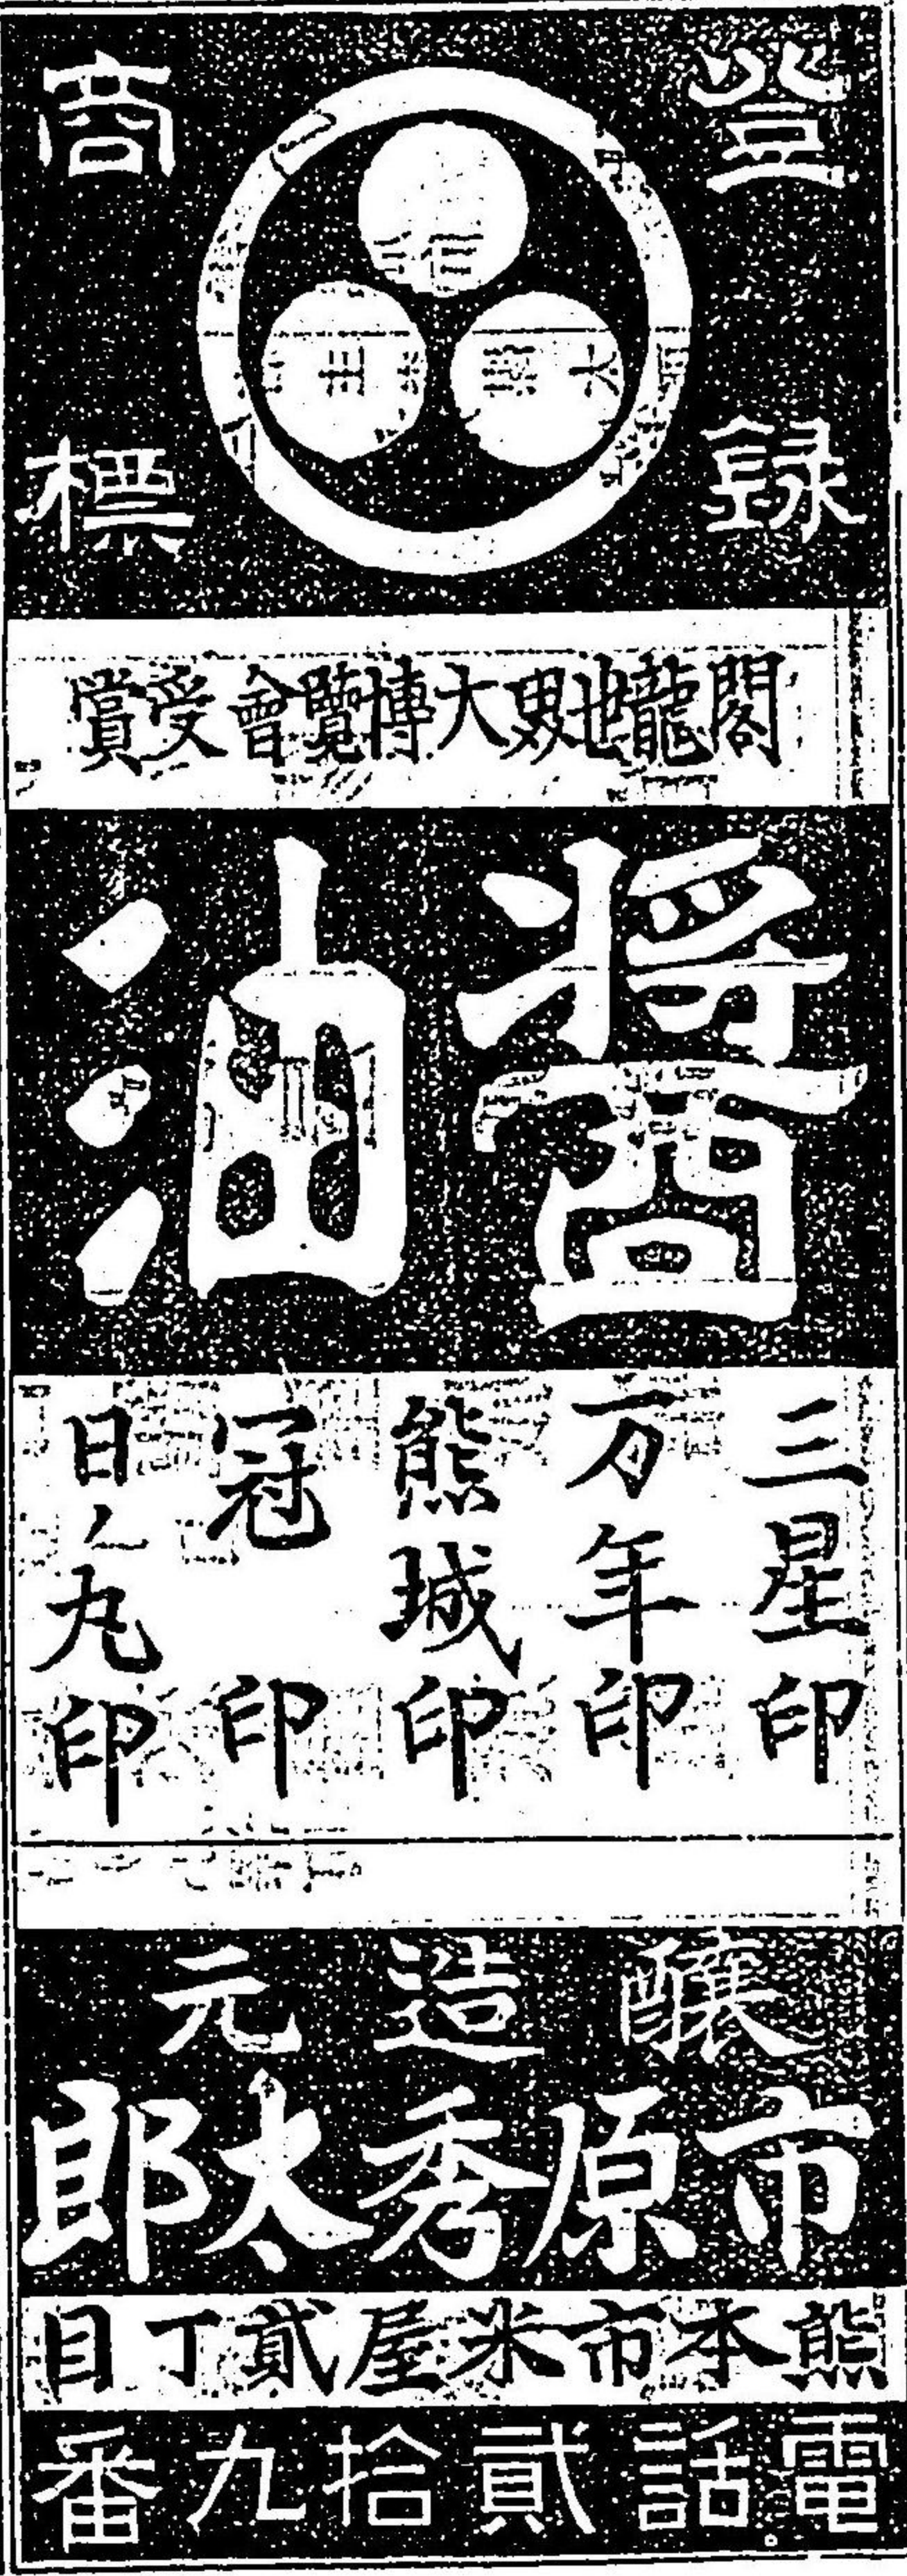 登録
商標
閣龍世界大博覽會受賞
醤油
三星印
万年印
熊城印
冠印
日ノ丸印
醸造元
市原秀太郎
熊本市米屋貳丁目
電話貳拾九番